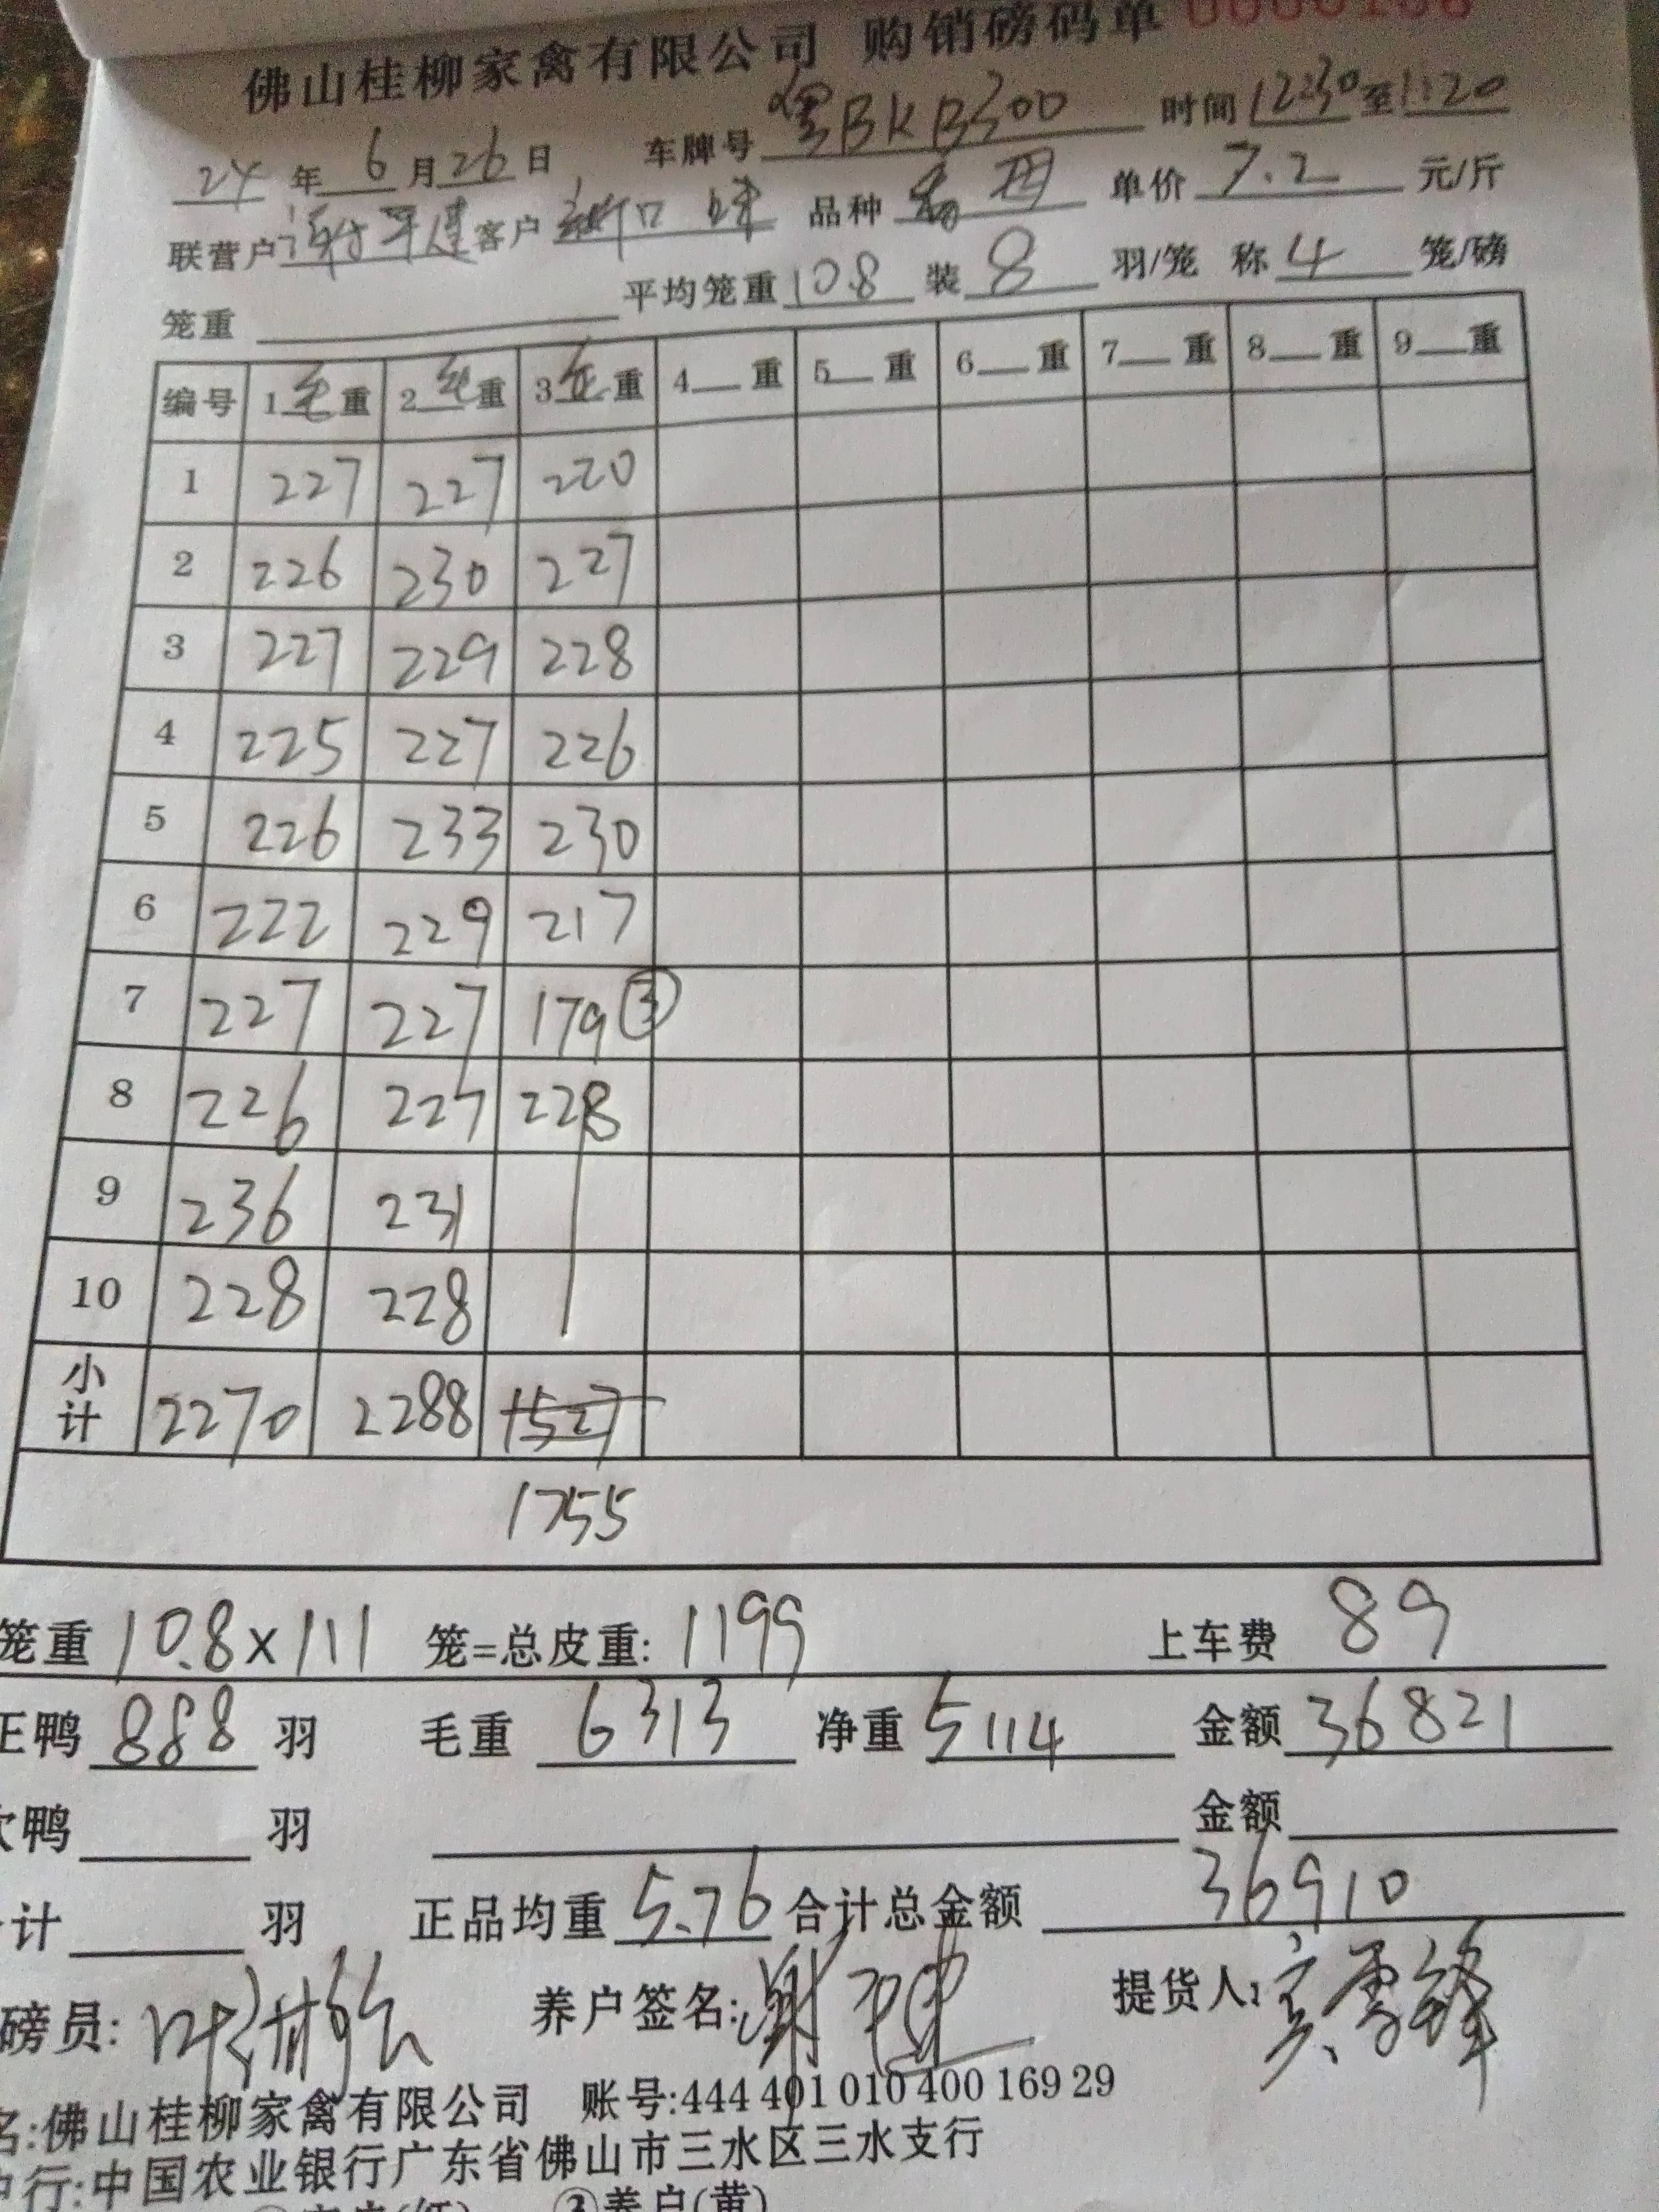 佛山桂柳家禽有限公司 购销磅码单 0000108
24 年 6 月 26 日 车牌号 粤BKB300 时间 12:30 至 1:20
联营户 谢平建 客户 新口味 品种 单价 7.2 元/斤
笼重 平均笼重 10.8 装 8 羽/笼 称 4 笼/磅
编号 1 毛 重 2 毛 重 3 毛 重 4 重 5 重 6 重 7 重 8 重 9 重
1 227 227 220
2 226 230 227
3 227 229 228
4 225 227 226
5 226 233 230
6 222 229 217
7 227 227 179 ③
8 226 227 228
9 236 231
10 228 228
小计 2270 2288 1527
1755
笼重 10.8×111 笼=总皮重: 1199 上车费 89
正鸭 888 羽 毛重 6313 净重 5114 金额 36821
次鸭 羽 金额
计 羽 正品均重 5.76 合计总金额 36910
磅员: 养户签名: 谢平建 提货人:
名:佛山桂柳家禽有限公司 账号:444 401 010 400 169 29
户行:中国农业银行广东省佛山市三水区三水支行
③养户(黄)